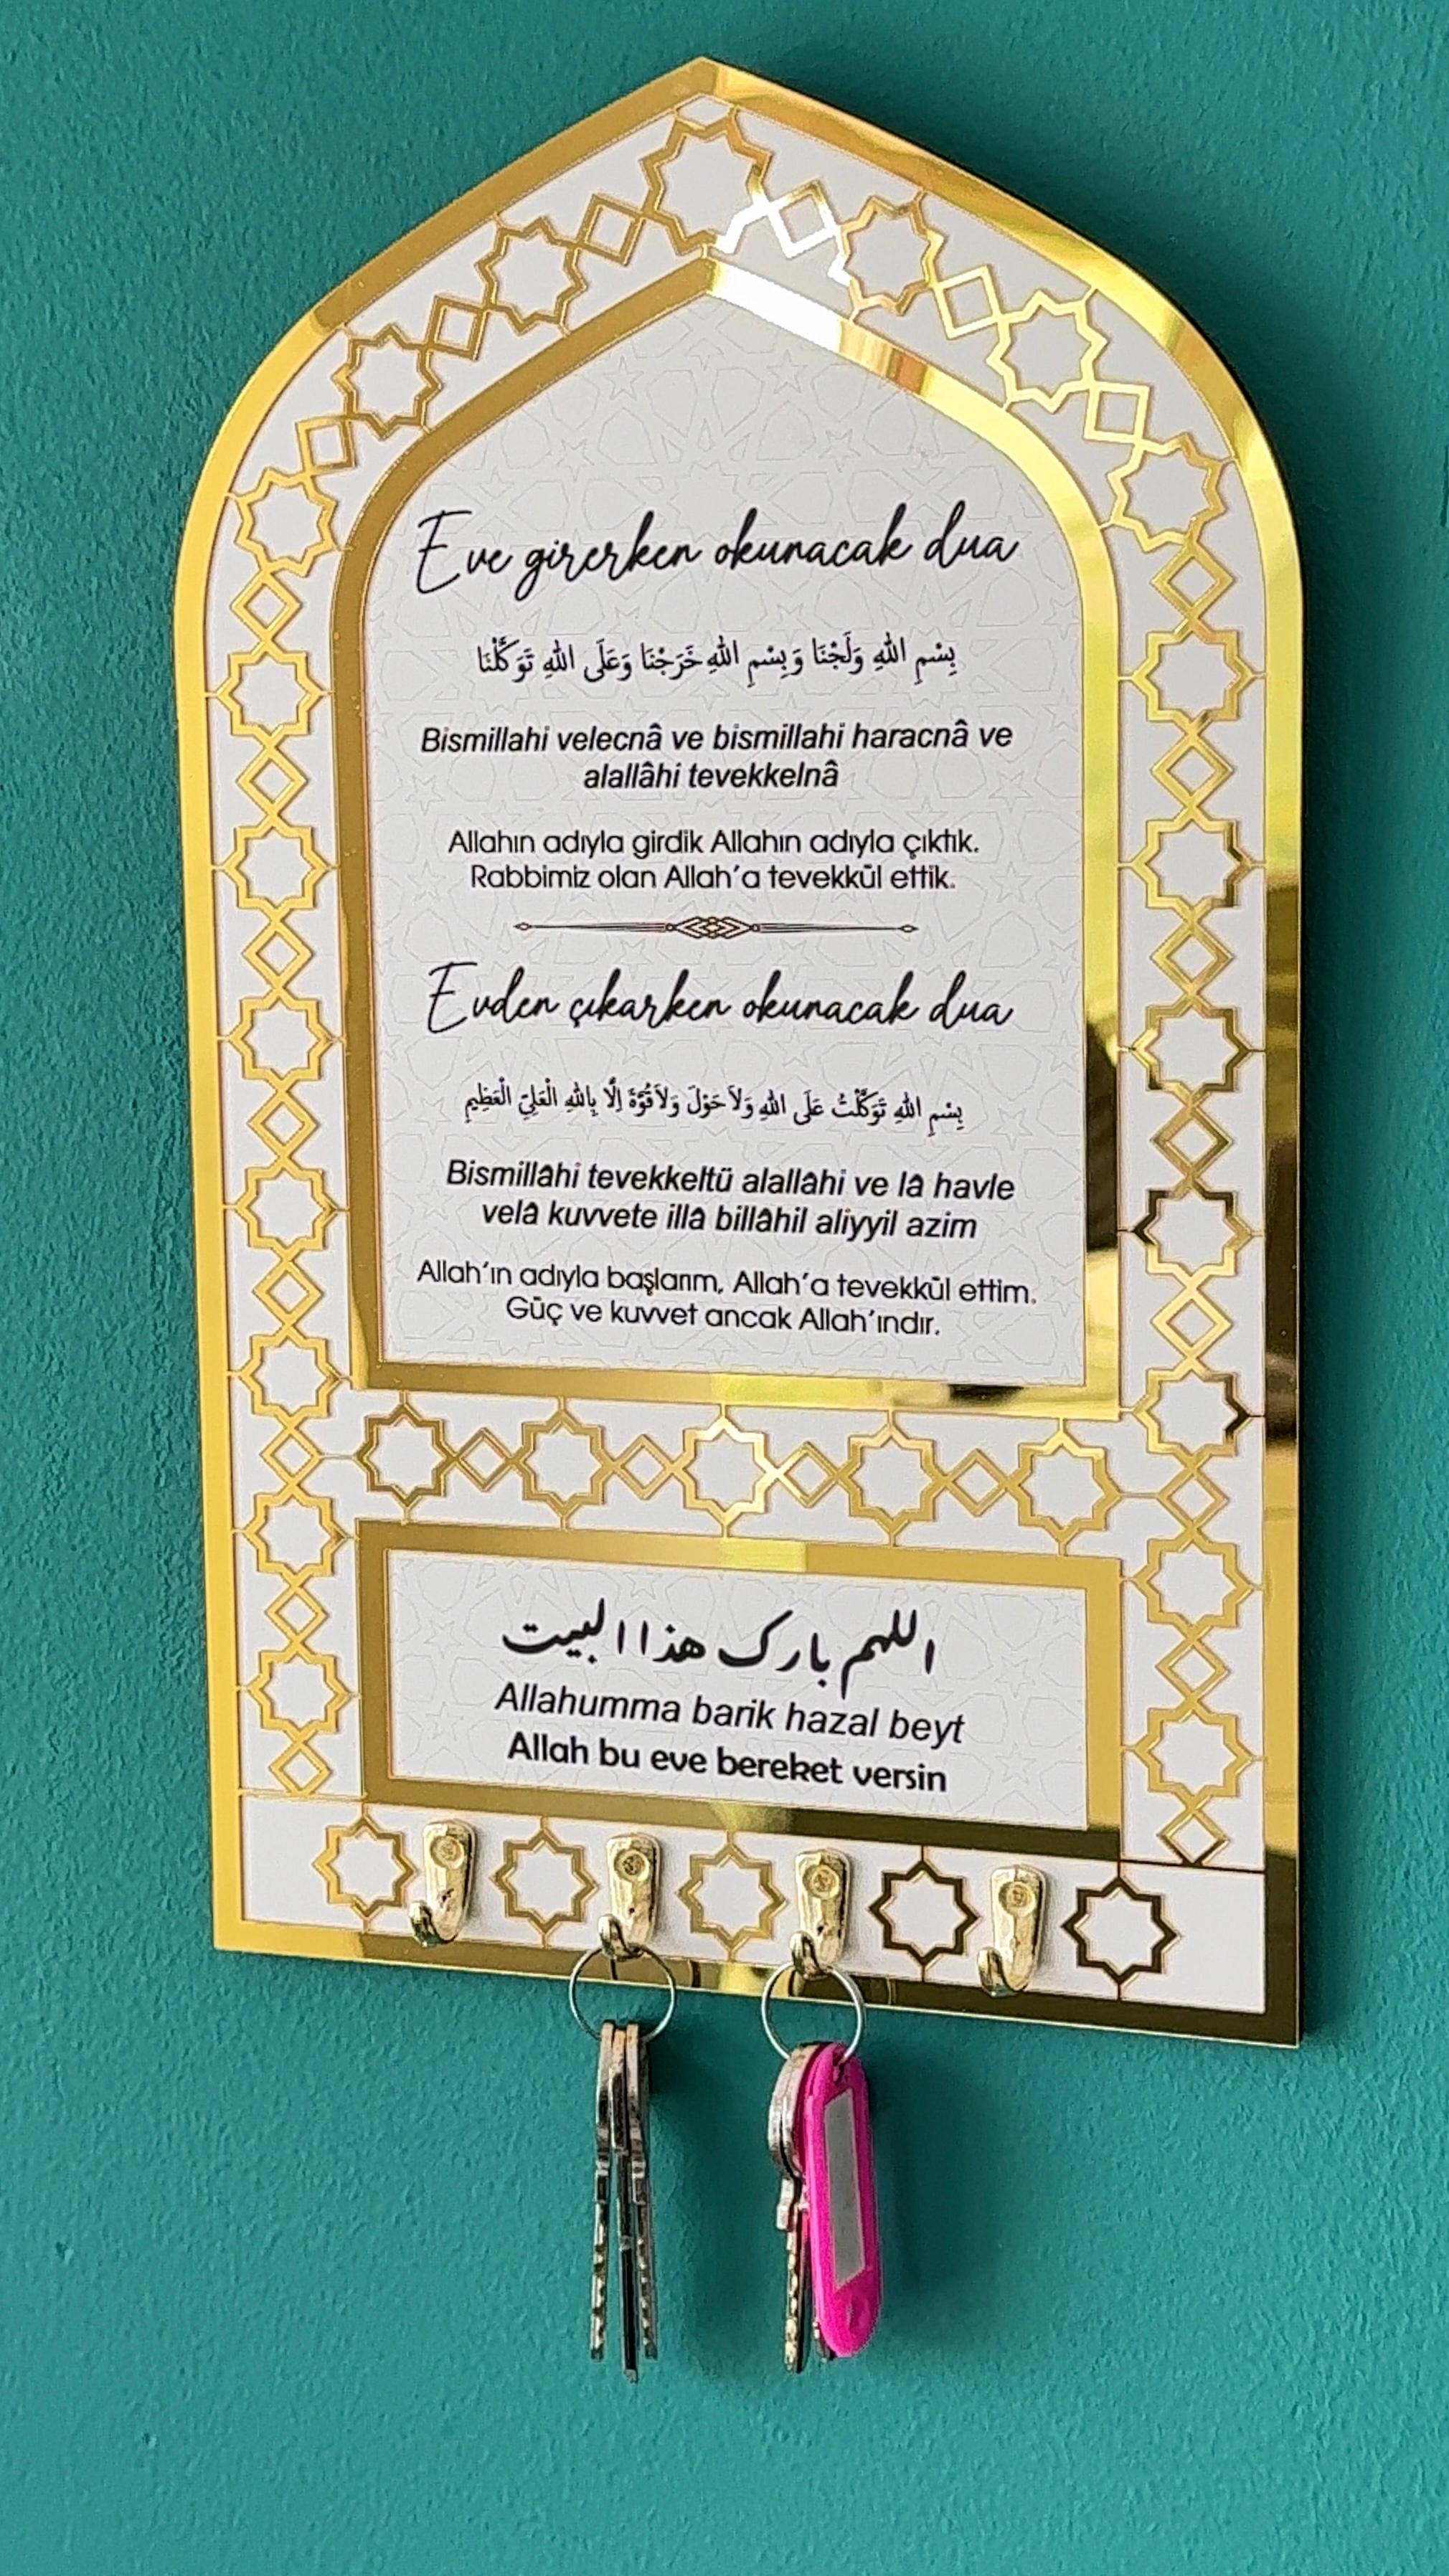 Eve girerken okunacak dua
بِسْمِ اللهِ وَلَجْنَا وَبِسْمِ اللهِ خَرَجْنَا وَعَلَى اللهِ تَوَكَّلْنَا
Bismillahi velecnâ ve bismillahi haracnâ ve
alallâhi tevekkelnâ
Allahın adıyla girdik Allahın adıyla çıktık.
Rabbimiz olan Allah'a tevekkül ettik.
Evden çıkarken okunacak dua
بِسْمِ اللهِ تَوَكَّلْتُ عَلَى اللهِ وَلاَحَوْلَ وَلاَقُوَّةَ اِلَّا بِاللهِ الْعَلِيِّ الْعَظِيمِ
Bismillâhi tevekkeltü alallâhi ve lâ havle
velâ kuvvete illâ billâhil aliyyil azim
Allah'ın adıyla başlarım, Allah'a tevekkül ettim.
Güç ve kuvvet ancak Allah'ındır.
اللهم بارك هذا البيت
Allahumma barik hazal beyt
Allah bu eve bereket versin